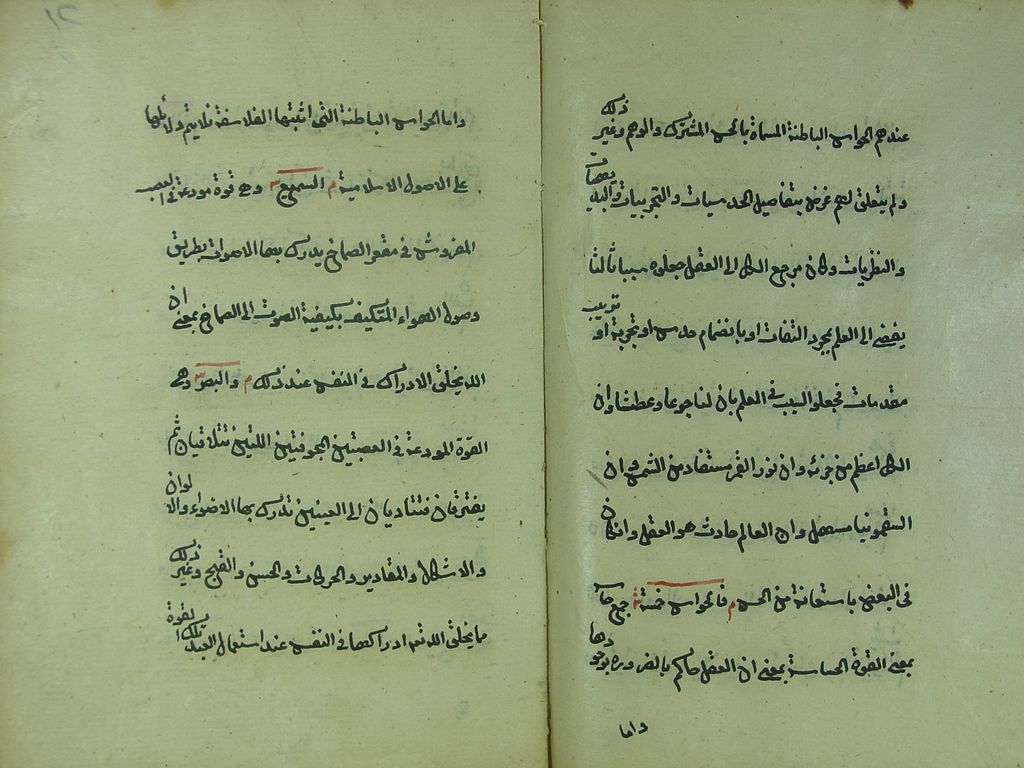 عندهم الحواس الباطنة المسماة بالحس المشترك والوهم وغير ذلك
ولم يتعلق لهم غرض بتفاصيل الحدسيات والتجربيات والبديهيات
والنظريات وكان مرجع الكل الى العقل جعلوه سببا ثالثا
يفضى الى العلم بمجرد التفات او بانضمام حدس او تجربة او ترتيب
مقدمات فجعلوا السبب فى العلم بان لنا جوعا وعطشا وان
الكل اعظم من جزئه وان نور القمر مستفاد من الشمس وان
السقمونيا مسهل وان العالم حادث هو العقل وان كان
فى البعض باستعانة من الحس م فالحواس خمسة ش جمع حاسة
بمعنى القوة الحساسة بمعنى ان العقل حاكم بالضرورة بوجودها
واما
١٢
واما الحواس الباطنة التى اثبتها الفلاسفة فلا يتم دلائلها
على الاصول الاسلامية م السمع ش وهى قوة مودعة فى العصب
المفروش فى مقعر الصماخ يدرك بها الاصوات بطريق
وصول الهواء المتكيف بكيفية الصوت الى الصماخ بمعنى ان
الله يخلق الادراك فى النفس عند ذلك م والبصر ش وهى
القوة المودعة فى العصبتين المجوفتين اللتين تتلاقيان ثم
يفترقان فتتاديان الى العينين تدرك بها الاضواء والالوان
والاشكال والمقادير والحركات والحسن والقبح وغير ذلك
مما يخلق الله تعم ادراكها فى النفس عند استعمال العبد تلك القوة